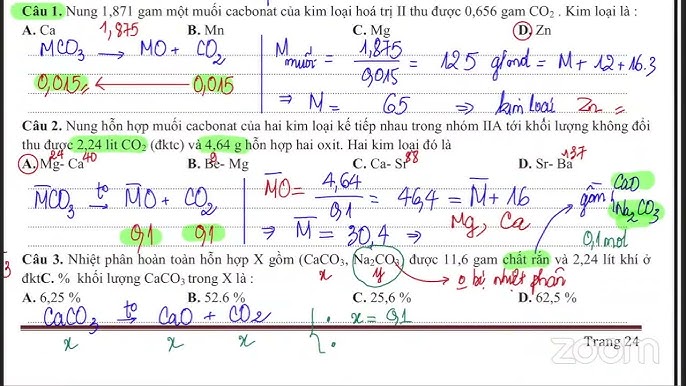 Câu 1. Nung 1,871 gam một muối cacbonat của kim loại hoá trị II thu được 0,656 gam CO2 . Kim loại là :
A. Ca 1,875 B. Mn C. Mg D. Zn
MCO3 → MO + CO2
0,015 ← 0,015
M muối = 1,875 / 0,015 = 125 g/mol = M + 12 + 16.3
⇒ M = 65 ⇒ kim loại Zn
Câu 2. Nung hỗn hợp muối cacbonat của hai kim loại kế tiếp nhau trong nhóm IIA tới khối lượng không đổi
thu được 2,24 lít CO2 (đktc) và 4,64 g hỗn hợp hai oxit. Hai kim loại đó là
A. Mg- Ca 24 40 B. Be- Mg 9 C. Ca- Sr 88 D. Sr- Ba 137
M̅CO3 to→ M̅O + CO2
0,1 0,1
M̅O = 4,64 / 0,1 = 46,4 = M̅ + 16
⇒ M̅ = 30,4 → Mg, Ca
gồm CaO
Na2CO3
0,1 mol
3
Câu 3. Nhiệt phân hoàn toàn hỗn hợp X gồm (CaCO3, Na2CO3) được 11,6 gam chất rắn và 2,24 lít khí ở
x y
→ o bị nhiệt phân
đktC. % khối lượng CaCO3 trong X là :
A. 6,25 % B. 52.6 % C. 25,6 % D. 62,5 %
CaCO3 to→ CaO + CO2
x x x
x = 0,1
Trang 24
zoom